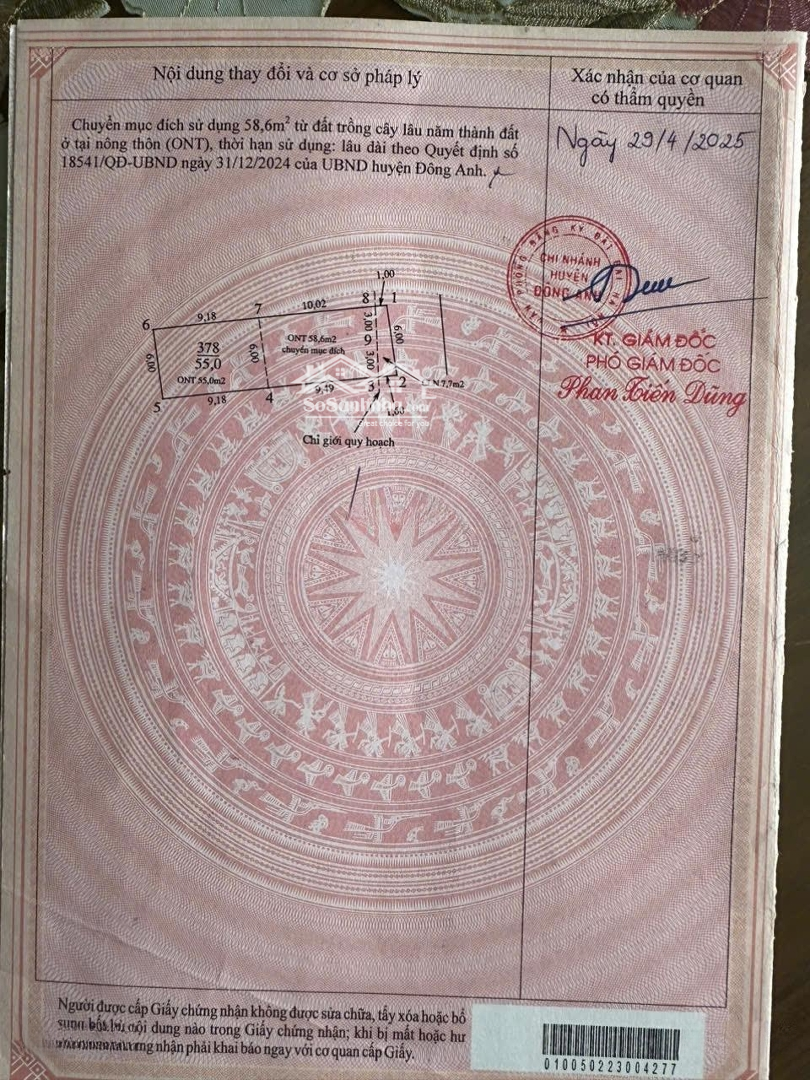 Nội dung thay đổi và cơ sở pháp lý
Xác nhận của cơ quan
có thẩm quyền
Chuyển mục đích sử dụng 58,6m² từ đất trồng cây lâu năm thành đất
ở tại nông thôn (ONT), thời hạn sử dụng: lâu dài theo Quyết định số
18541/QĐ-UBND ngày 31/12/2024 của UBND huyện Đông Anh.
Ngày 29/4/2025
ĐĂNG KÝ ĐẤT
CHI NHÁNH
HUYỆN
ĐÔNG ANH
KT. GIÁM ĐỐC
PHÓ GIÁM ĐỐC
Phan Tiến Dũng
1,00
6 9,18 7 10,02 8 1
378
55,0
ONT 55,0m2
6,00
6,00
ONT 58,6m2
chuyển mục đích
3,00
9
3,00
6,00
N 7,7m2
5 9,18 4 3 2
Chỉ giới quy hoạch
Người được cấp Giấy chứng nhận không được sửa chữa, tẩy xóa hoặc bổ
nội dung nào trong Giấy chứng nhận; khi bị mất hoặc hư
nhận phải khai báo ngay với cơ quan cấp Giấy.
010050223004277